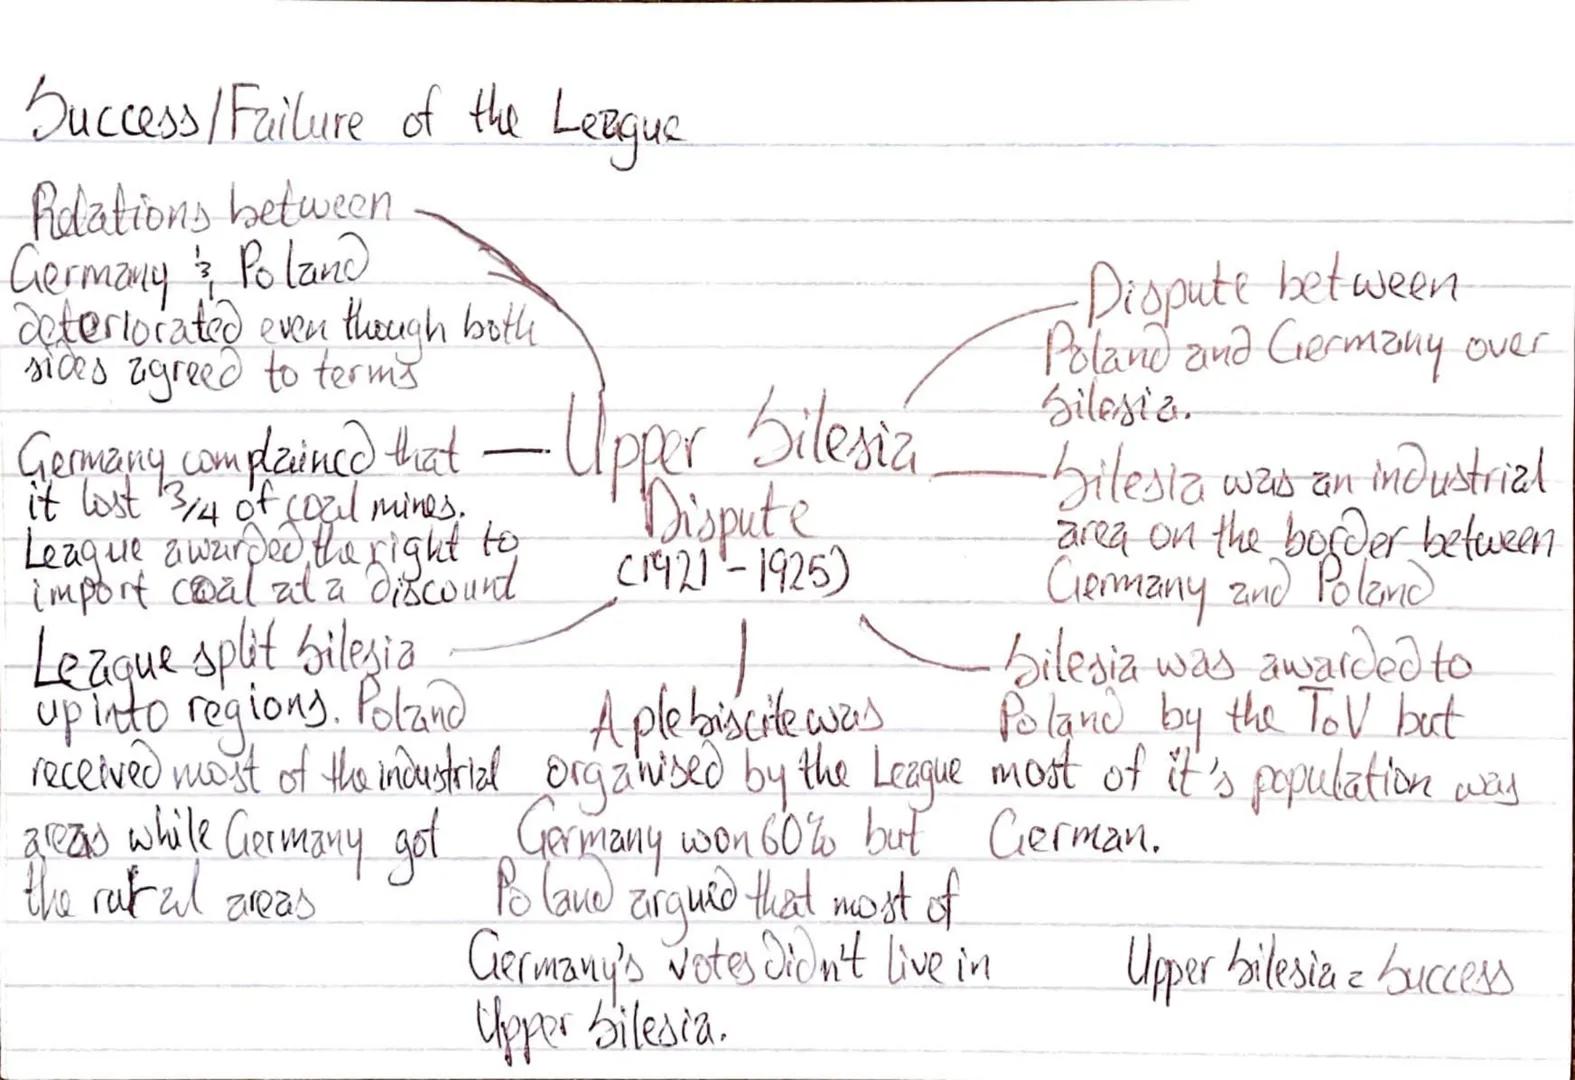 Success/Failure of the League
Relations between
Germany & Poland
deteriorated even though both
sides agreed to terms
Germany complained that
it lost 3/4 of coal mines.
League awarded the right to
import coal at a discount
League split Silesia
up into regions. Poland
received most of the industrial
areas while Germany got
the rural areas
Upper Silesia
Dispute
(1921-1925)
A plebiscite was
organised by the League
Germany won 60% but
Poland argued that most of
Germany's votes didn't live in
Upper Silesia.
Dispute between
Poland and Germany over
Silesia.
Silesia was an industrial
area on the border between
Germany and Poland
Silesia was awarded to
Poland by the ToV but
most of it's population was
German.
Upper Silesia = Success